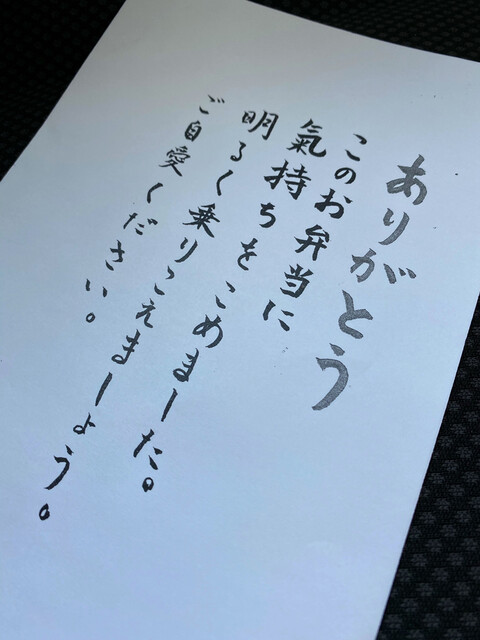 ありがとう
このお弁当に
氣持ちをこめました。
明るく乗りこえましょう。
ご自愛ください。